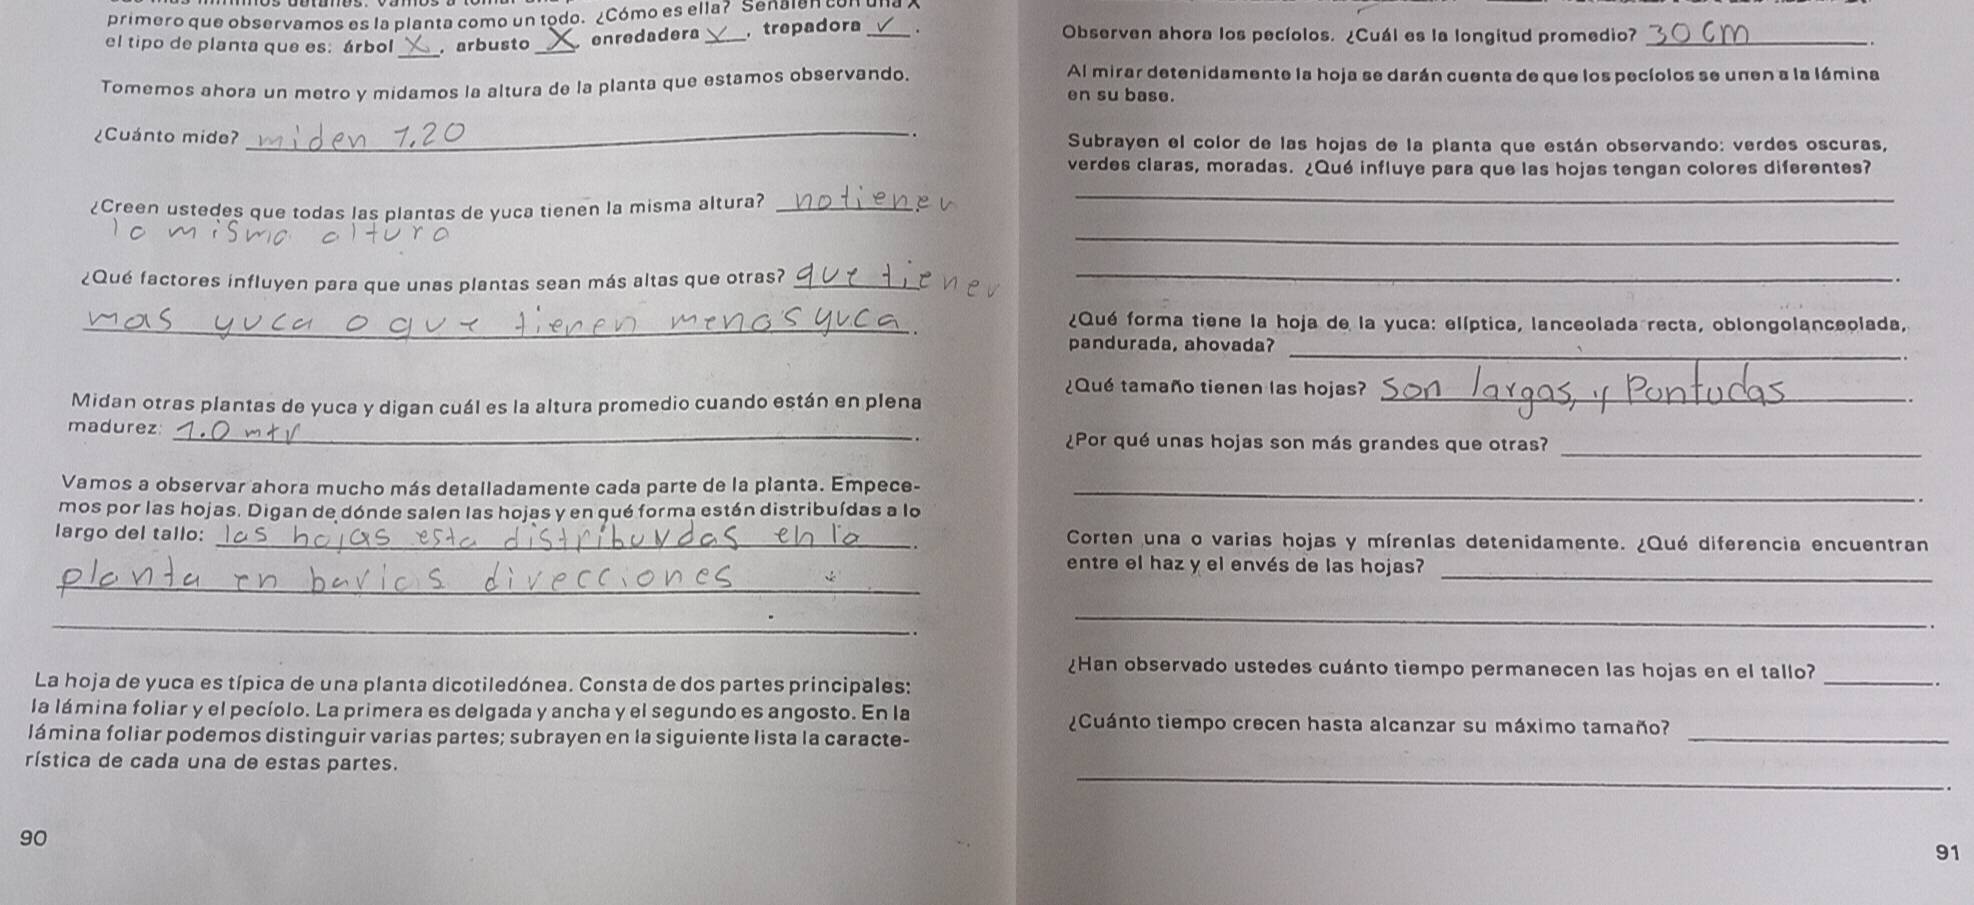 primero que observamos es la planta como un todo. ¿Cómo es ella? Señalen con una X
el tipo de planta que es: árbol X, arbusto X, enredadera ✓, trepadora ✓.
Tomemos ahora un metro y midamos la altura de la planta que estamos observando.
¿Cuánto mide? miden 1.20.
¿Creen ustedes que todas las plantas de yuca tienen la misma altura? no tienen
la misma altura
¿Qué factores influyen para que unas plantas sean más altas que otras? que tienen
mas yuca o que tienen menos yuca.
Midan otras plantas de yuca y digan cuál es la altura promedio cuando están en plena
madurez: 1.0 mtr.
Vamos a observar ahora mucho más detalladamente cada parte de la planta. Empece-
mos por las hojas. Digan de dónde salen las hojas y en qué forma están distribuídas a lo
largo del tallo: las hojas esta distribuydas en la.
planta en baricis direcciones
La hoja de yuca es típica de una planta dicotiledónea. Consta de dos partes principales:
la lámina foliar y el pecíolo. La primera es delgada y ancha y el segundo es angosto. En la
lámina foliar podemos distinguir varias partes; subrayen en la siguiente lista la caracte-
rística de cada una de estas partes.
90
Observen ahora los pecíolos. ¿Cuál es la longitud promedio? 30 cm.
Al mirar detenidamente la hoja se darán cuenta de que los pecíolos se unen a la lámina
en su base.
Subrayen el color de las hojas de la planta que están observando: verdes oscuras,
verdes claras, moradas. ¿Qué influye para que las hojas tengan colores diferentes?
¿Qué forma tiene la hoja de la yuca: elíptica, lanceolada recta, oblongolanceolada,
pandurada, ahovada?
¿Qué tamaño tienen las hojas? Son largas, y Pontudas.
¿Por qué unas hojas son más grandes que otras?
Corten una o varias hojas y mírenlas detenidamente. ¿Qué diferencia encuentran
entre el haz y el envés de las hojas?
¿Han observado ustedes cuánto tiempo permanecen las hojas en el tallo?
¿Cuánto tiempo crecen hasta alcanzar su máximo tamaño?
91